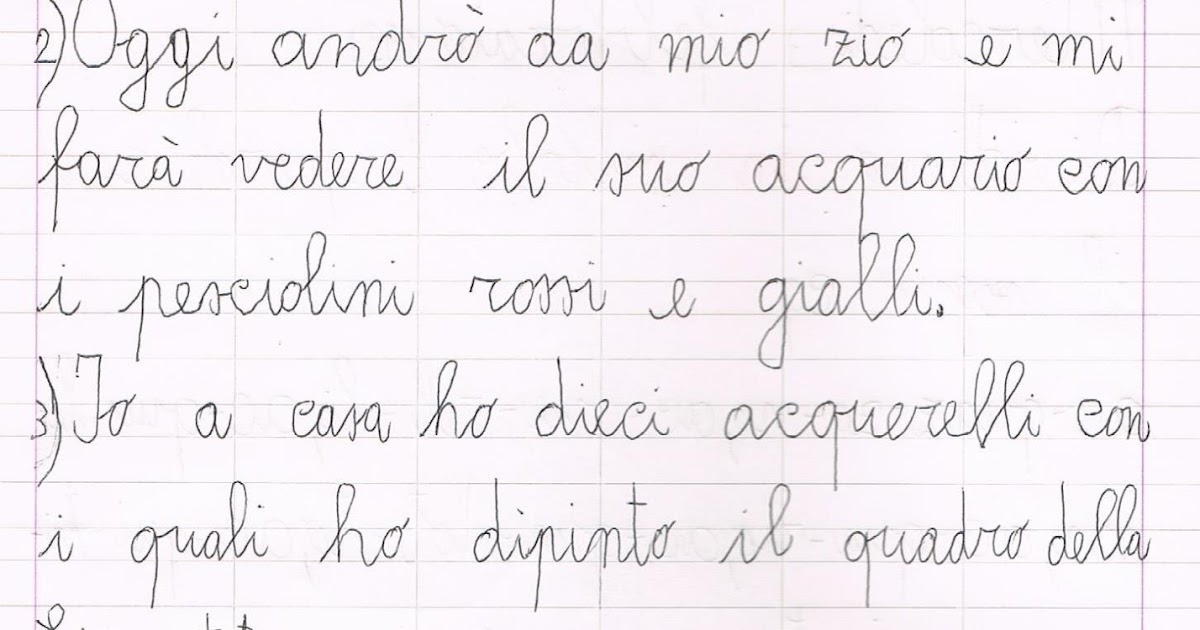 2) Oggi andrò da mio zio e mi
farà vedere il suo acquario con
i pesciolini rossi e gialli.
3) Io a casa ho dieci acquerelli con
i quali ho dipinto il quadro della